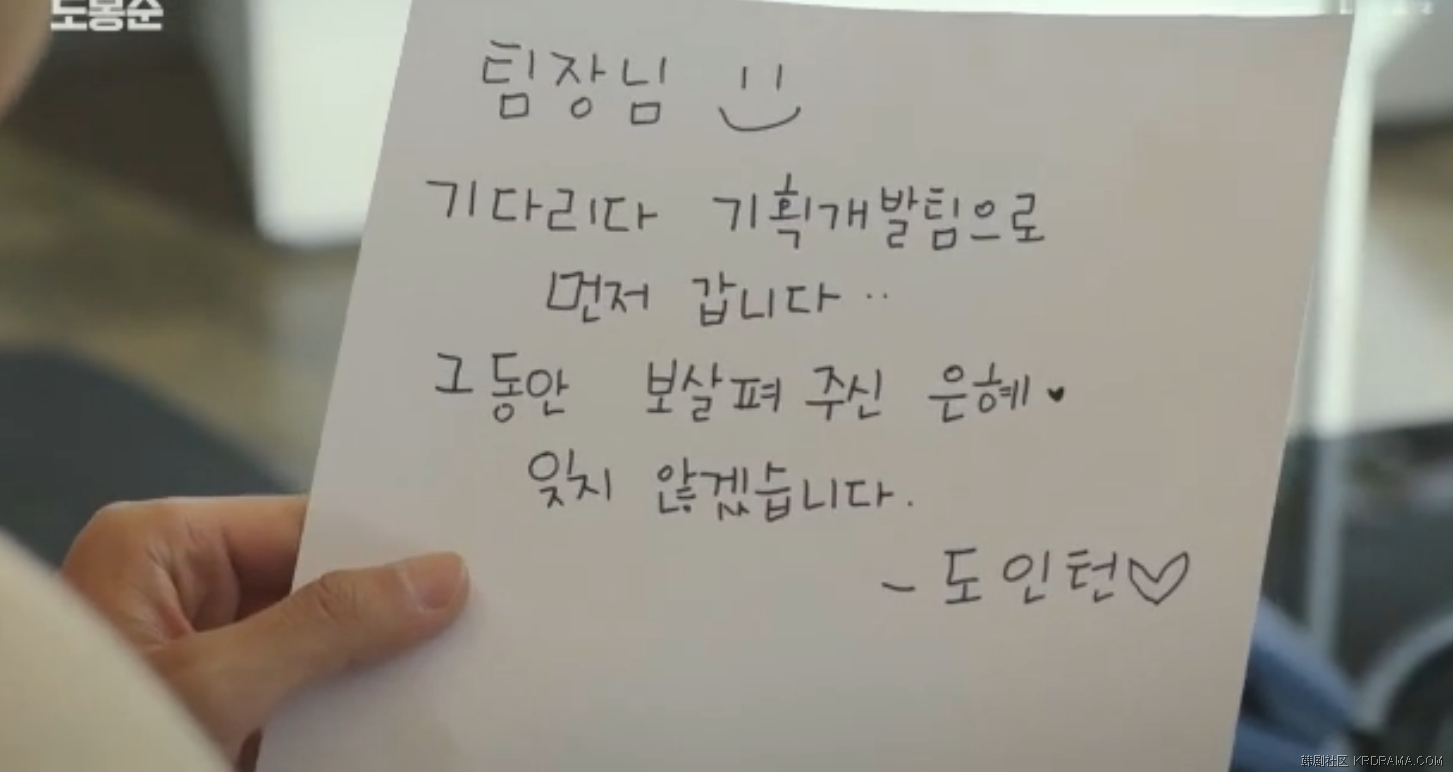 도봉순
팀장님
기다리다 기획개발팀으로
먼저 갑니다..
그동안 보살펴 주신 은혜♥
잊지 않겠습니다.
- 도인턴♡
韩剧社区 KRDRAMA.COM